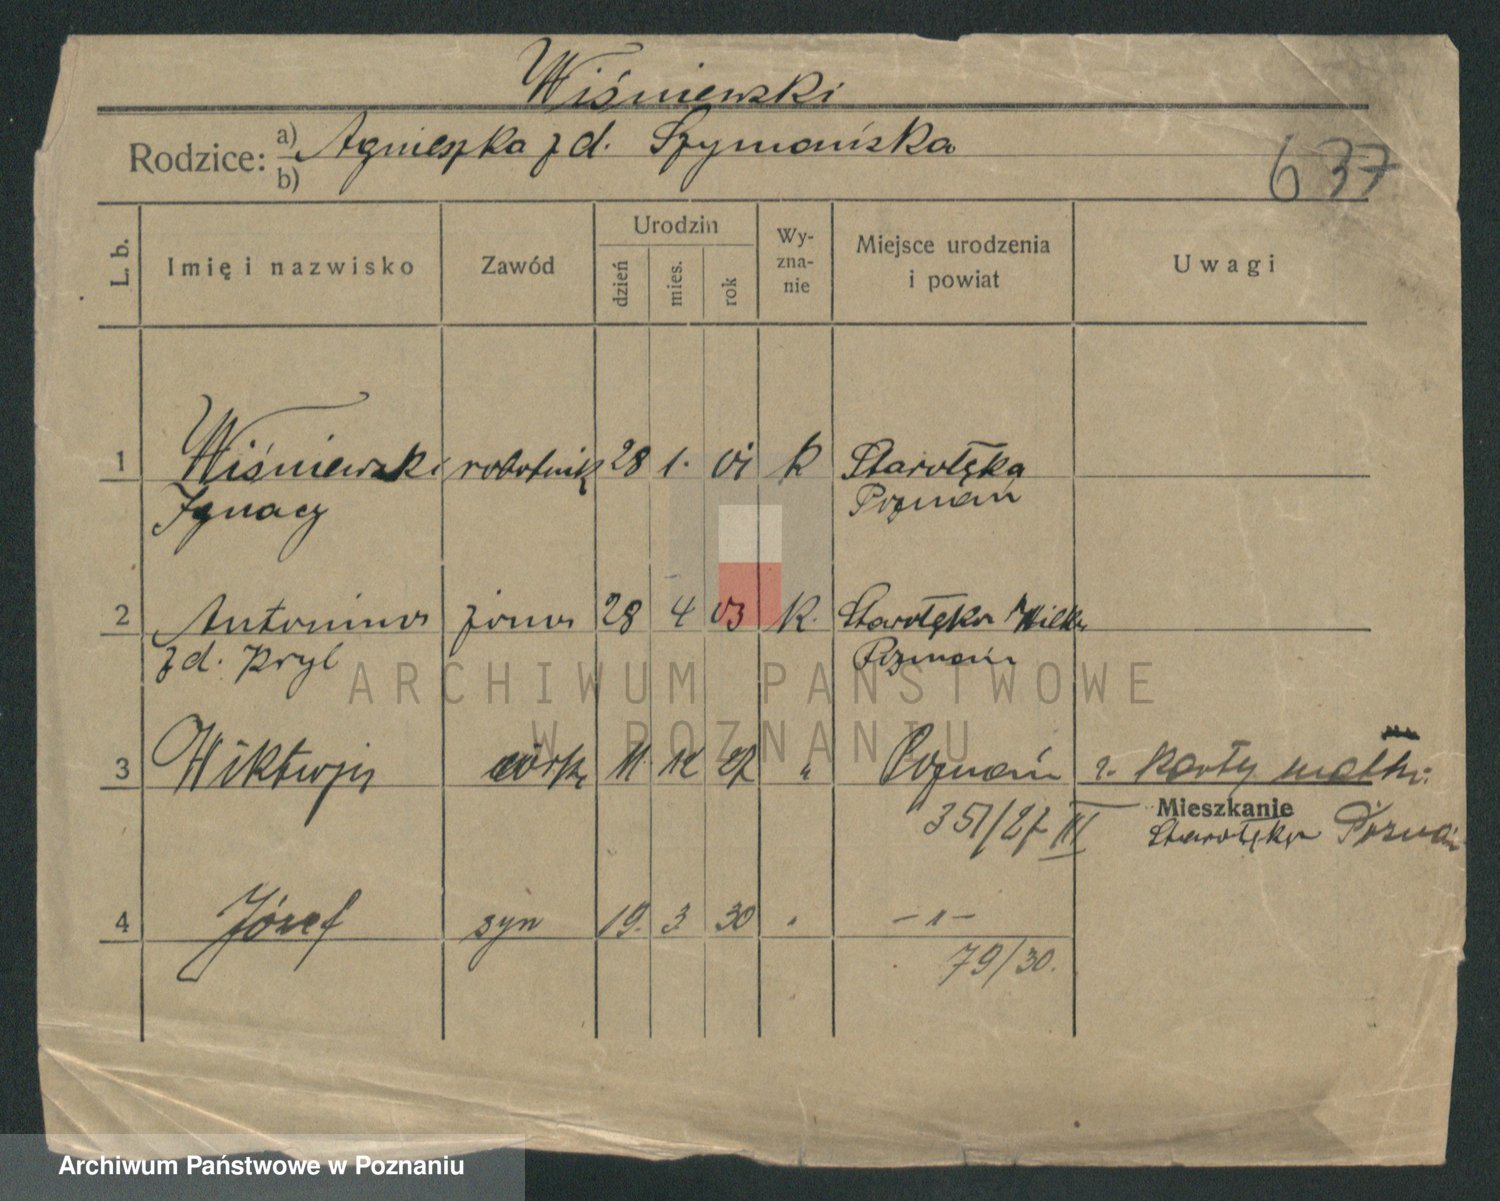 Wiśniewski
Rodzice: a) Agnieszka z d. Szymańska
b)
637
L. b. Imię i nazwisko Zawód Urodzin dzień mies. rok Wy-zna-nie Miejsce urodzenia i powiat Uwagi
1 Wiśniewski robotnik 28 1. 01 k Starołęka
Ignacy Poznań
2 Antonina żona 28 4 03 k. Starołęka Wilk.
z d. Pryl Poznań
3 Wiktorja córka 11. 12 27 " Poznań z karty matki
351/27 III Mieszkanie
Starołęka Poznań
4 Józef syn 19. 3 30 " – " –
79/30.
ARCHIWUM PAŃSTWOWE
W POZNANIU
Archiwum Państwowe w Poznaniu